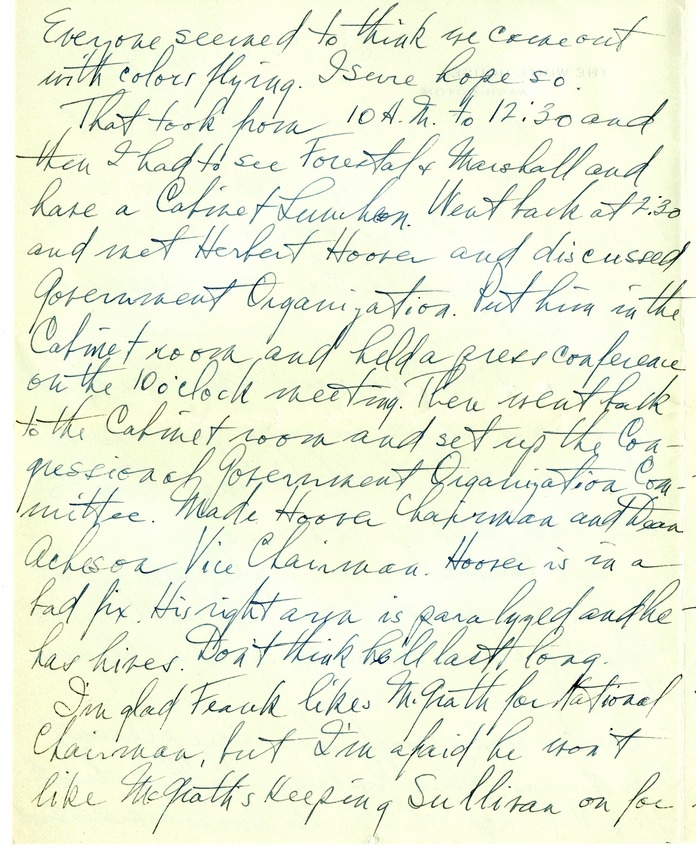 Everyone seemed to think we come out
with colors flying. I sure hope so.
That took from 10 A.M. to 12:30 and
then I had to see Forestal & Marshall and
have a Cabinet Luncheon. Went back at 2:30
and met Herbert Hoover and discussed
Government Organization. Put him in the
Cabinet room and held a press conference
on the 10 o'clock meeting. Then went back
to the Cabinet room and set up the Con-
gressional Government Organization Com-
mittee. Made Hoover Chairman and Dean
Acheson Vice Chairman. Hoover is in a
bad fix. His right arm is paralyzed and he
has hives. Don't think he'll last long.
I'm glad Frank likes McGrath for National
Chairman, but I'm afraid he won't
like McGrath's keeping Sullivan on for